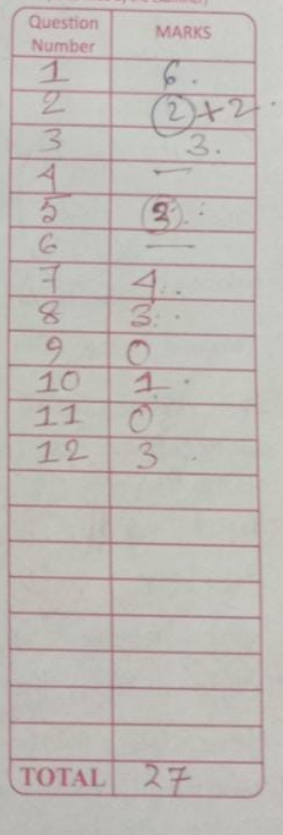 Question Number MARKS
1 6.
2 (2)+2
3 3.
4 —
5 (3)
6 —
7 4
8 3
9 0
10 1
11 0
12 3
TOTAL 27